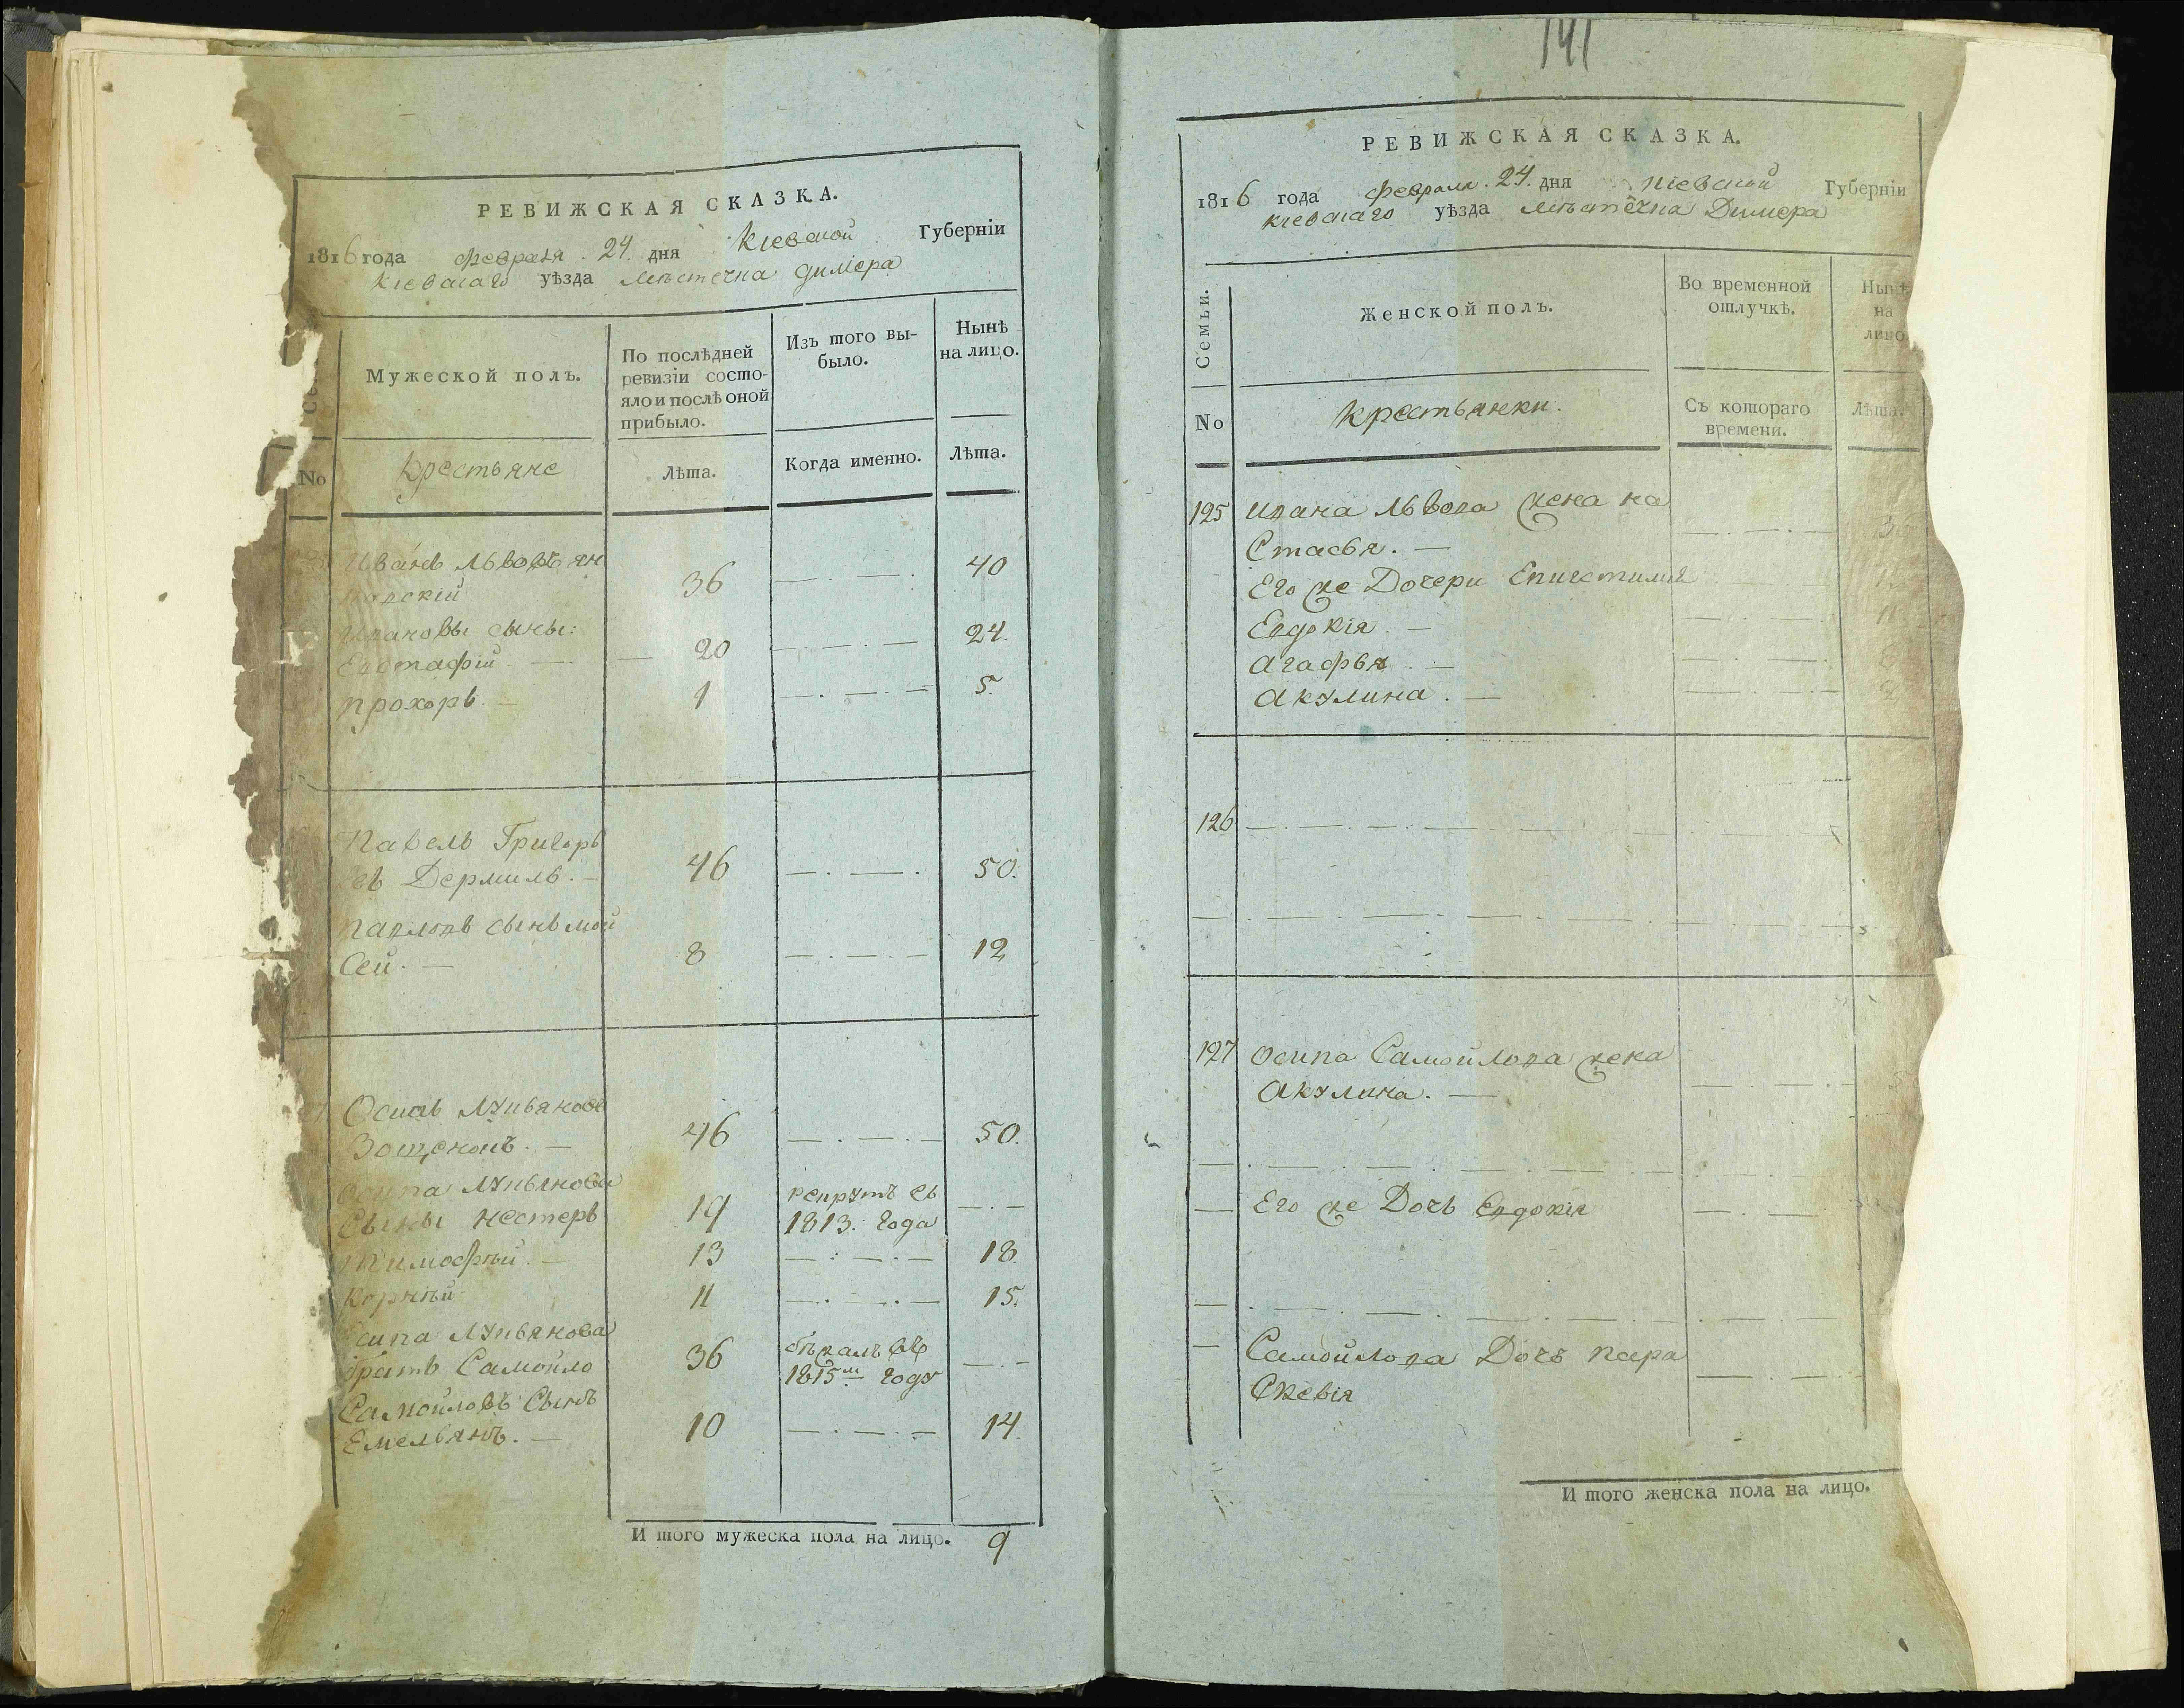 РЕВИЖСКАЯ СКАЗКА.
1816 года февраля 24. дня Кіевской Губерніи
Кіевскаго уѣзда мѣстечка димера
Мужеской полъ.
По послѣдней
ревизіи состо-
яло и послѣ оной
прибыло.
Изъ того вы-
было.
Нынѣ
на лицо.
No
Крестьяне
Лѣта.
Когда именно.
Лѣта.
Иванъ Львовъ
36
40
Ивановы сыны:
Евстафій
20
24.
прохоръ.
1
5.
Павелъ Григорь
евъ
46
50.
павловъ сынъ мой
Сей.
8
12
Осипъ Лукьяновъ
46
50.
осипа Лукьянова
Сыны нестеръ
19
рекрутъ въ
1813. года
тимофѣй.
13
18.
Корнѣй
11
15.
осипа Лукьянова
братъ Самойло
36
бѣжалъ въ
1815м году
Самойловъ Сынъ
Емельянъ.
10
14.
И того мужеска пола на лицо. 9
141
РЕВИЖСКАЯ СКАЗКА.
1816 года февраля. 24. дня Кіевской Губерніи
Кіевскаго уѣзда мѣстечка Димера
Семьи.
Женской полъ.
Во временной
отлучкѣ.
Нынѣ
на
лицо
No
крестьянки.
Съ котораго
времени.
Лѣта.
125
Ивана Львова жена на
Стасья.
Его же Дочери Епистимія
Евдокія.
агафья.
акулина.
126
127
осипа Самойлова жена
акулина.
Его же Дочь Евдокія
Самойлова Дочь пара
Скевія
И того женска пола на лицо.